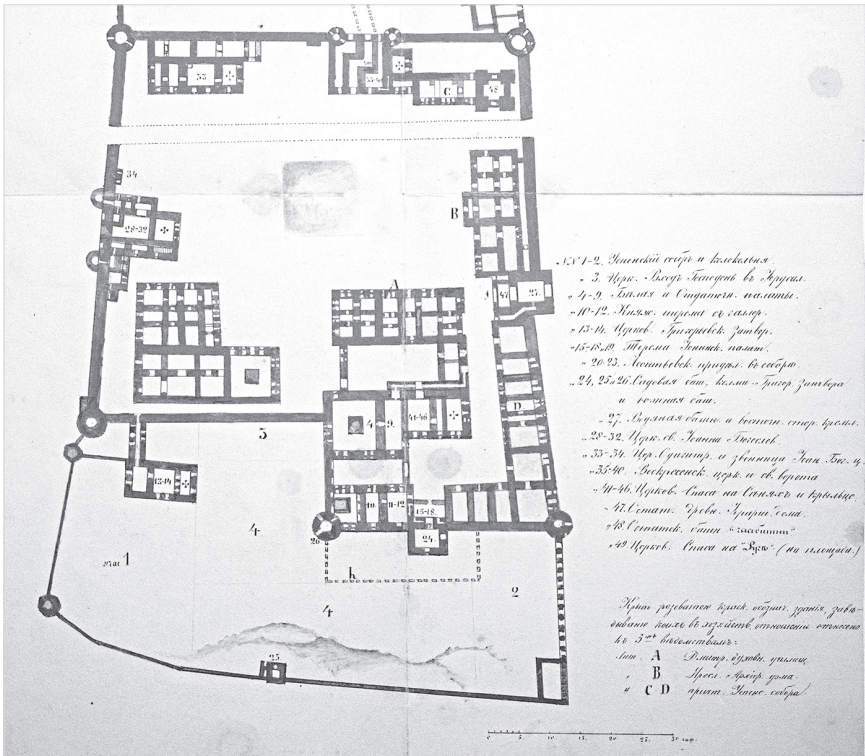 34
28-32
33
35-40
C
48
B
47
27.
A
D
4
9.
41-46
3
13-14
10.
11-12
15-18.
24.
20
4
1
2
k
4
25
№№ 1-2. Успенскій соборъ и колокольня.
„ 3. Церк. Входъ Господень въ Іерусал.
„ 4-9. Бѣлая и палаты.
„ 10-12. Княж. терема съ галер.
„ 13-14. Церков. Григорьевск. Затвор.
„ 15-18 19. Терема палат.
„ 20-23. Леонтьевск. придѣл. въ соборѣ
„ 24, 25 и 26. Садовая баш., Григор. Затвора
и баш.
„ 27. Водяная башн. и восточн. стор. кремл.
„ 28-32. Церк. св. Іоанна Богослов.
„ 33-34. Цер. Одигитр. и звонница Іоан. Бог. ц.
„ 35-40. Воскресенск. церк. и св. ворота
„ 41-46. Церков. Спаса на Сѣняхъ и крыльцо.
„ 47. Остат. дома.
„ 48. Остатк. башн.
„ 49 Церков. Спаса на (на площади.)
краск. обознач. зданія,
въ хозяйств. отношеніи отнесено
къ 3мъ вѣдомствамъ:
Лит. A Дмитр. духовн. училищ.
„ B Яросл. Архіер. дома.
„ C D причт. Успенс. собора
0 5. 10. 15. 20. 25. 30 саж.